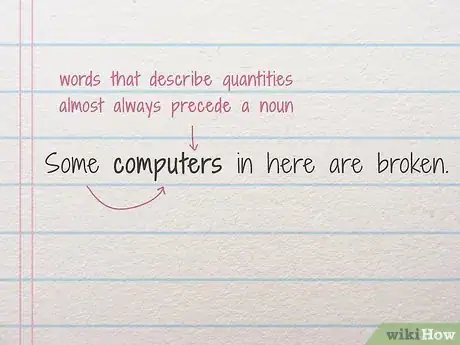 words that describe quantities
almost always precede a noun
Some computers in here are broken.
wikiHow